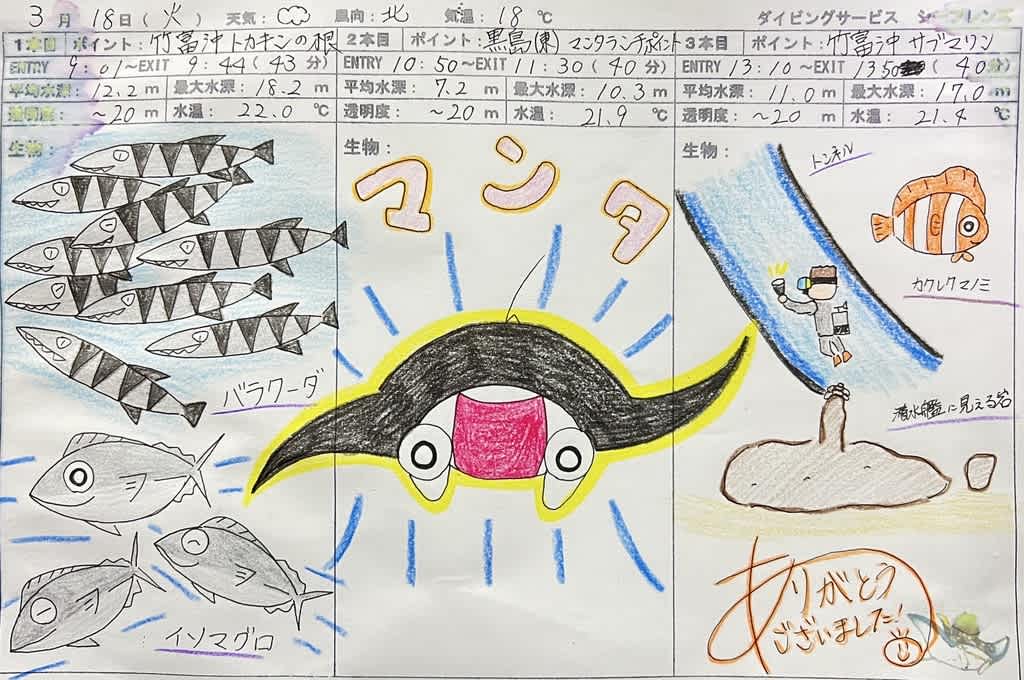 3月 18日(火) 天気: 風向: 北 気温: 18℃ ダイビングサービス シーフレンズ
1本目 ポイント: 竹富沖 トカキンの根
ENTRY 9:01~EXIT 9:44(43分)
平均水深: 12.2m 最大水深: 18.2m
透明度: ~20m 水温: 22.0℃
生物:
バラクーダ
イソマグロ
2本目 ポイント: 黒島(東) マンタランチポイント
ENTRY 10:50~EXIT 11:30(40分)
平均水深: 7.2m 最大水深: 10.3m
透明度: ~20m 水温: 21.9℃
生物:
マンタ
3本目 ポイント: 竹富沖 サブマリン
ENTRY 13:10~EXIT 13:50(40分)
平均水深: 11.0m 最大水深: 17.0m
透明度: ~20m 水温: 21.4℃
生物:
トンネル
カクレクマノミ
潜水艦に見える岩
ありがとう
ございました!